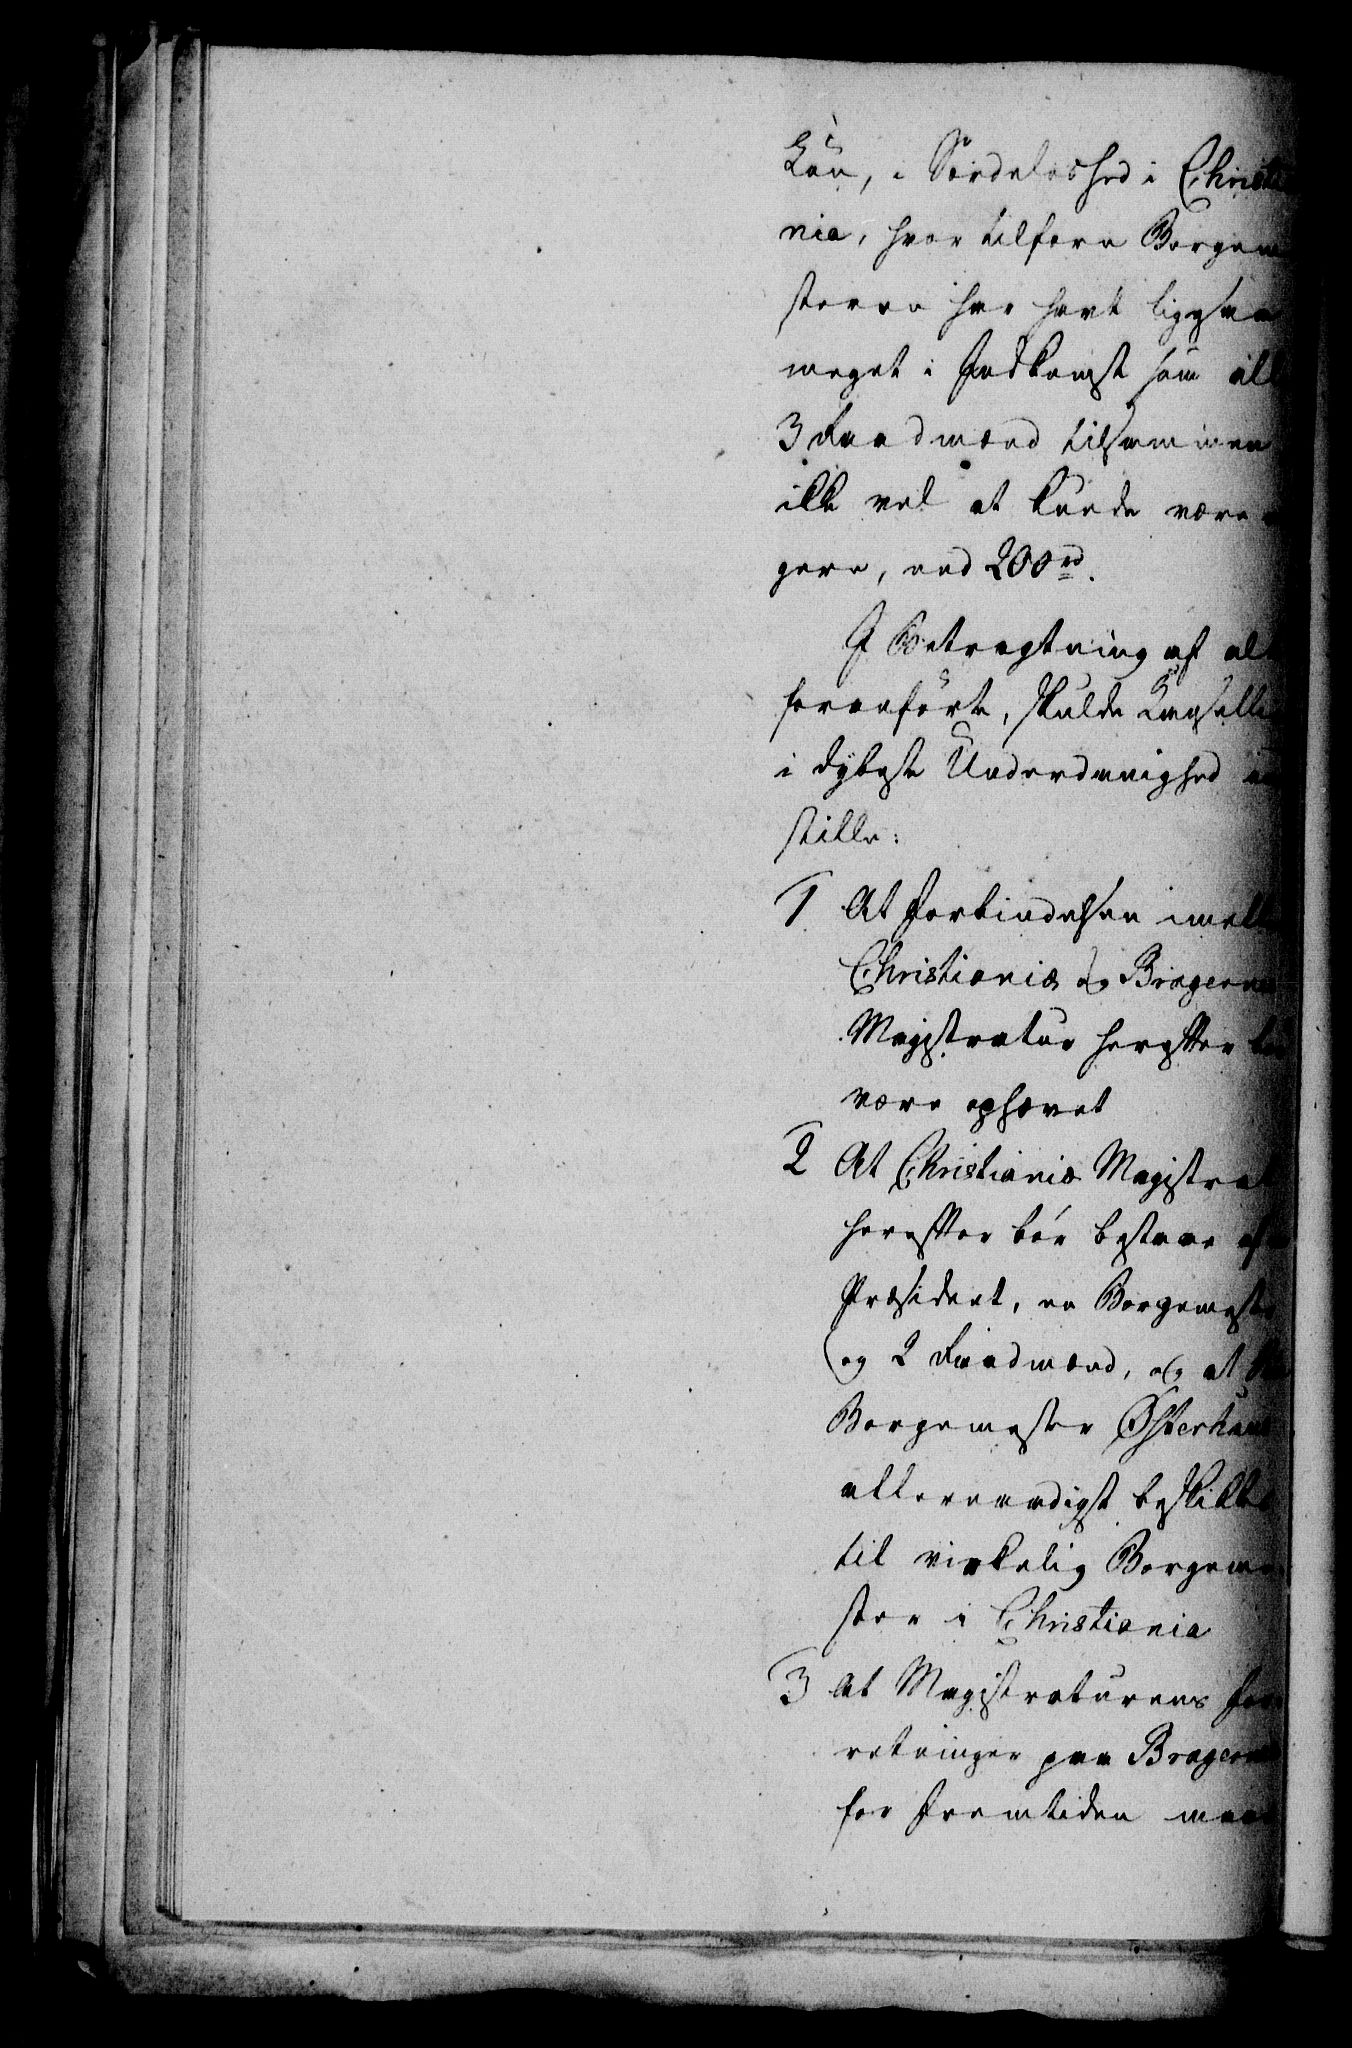 kan, i Særdeleshed i Christia
nia, hvor tilforn Borgem
steren har havt ligesaa
meget i Indkomst som all
3 Raadmænd tilsammen
ikke vel at kunde være
gere, end 200 rd.
I Betragtning af alt
foranførte, skulde Cancellie
i dybeste Underdanighed ind
stille:
1 At Forbindelsen imell
Christiania og Bragernes
Magistratur herefter bør
være ophævet
2 At Christiania Magistrat
herefter bør bestaae af
Præsident, en Borgemeste
og 2 Raadmænd, og at
Borgemester Østerhaus
allernaadigst beskikkes
til virkelig Borgeme
ster i Christiania
3 At Magistraturens For
retninger paa Bragernes
for Fremtiden maae